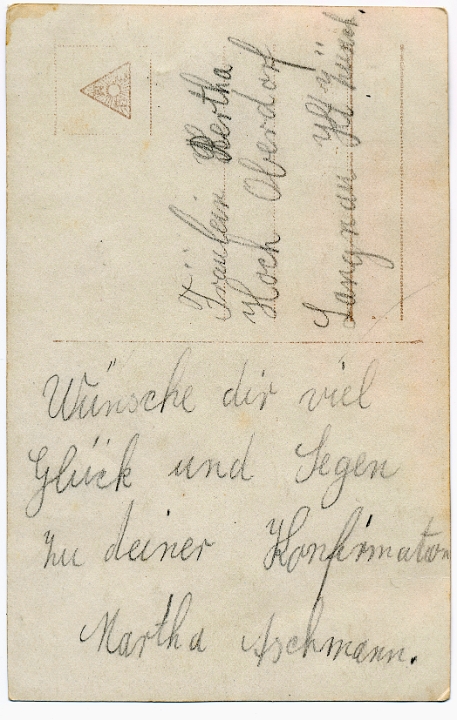 Fräulein Hertha
Hoch Oberdorf
Langnau Kt Zürich.
Wünsche dir viel
Glück und Segen
zu deiner Konfirmation
Martha Aschmann.